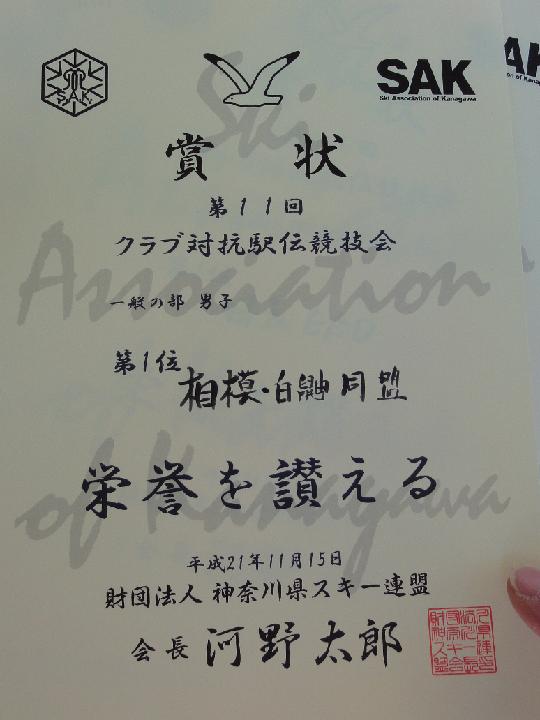 SAK
SAK
Ski Association of Kanagawa
Ski
賞 状
第11回
クラブ対抗駅伝競技会
Association
一般の部 男子
第1位 相模・白鼬同盟
of Kanagawa
栄誉を讃える
平成21年11月15日
財団法人 神奈川県スキー連盟
会長 河野太郎